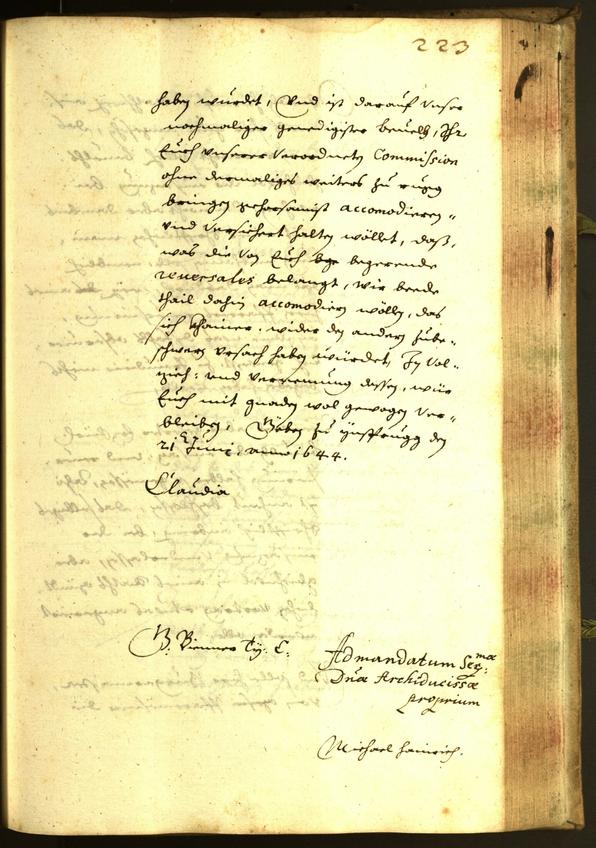 223
haben wurdet, Vnd ist darauf vnser
nochmaliger genedigister beuelch, Ihr
Euch vnserer verordneten Commission
ohne dermaliges weiters zu rugg
bringen gehorsamist accomodieren
vnd versichert halten wöllet, daß,
was die von Euch begerende
reuersales belangt, wir beede
thail dahin accomodiern wölln, das
sich khainer, wider den andern zube-
schwern vrsach haben würdet, In Vol-
zieh: vnd vernemung dessen, wür
Euch mit gnaden wol gewogen ver-
bleiben, Geben zu Ynsprugg den
21 Juny, anno 1644.
Claudia
Ad mandatum Sermae
Dnae Archiducissae
proprium
Michael Hainrich.